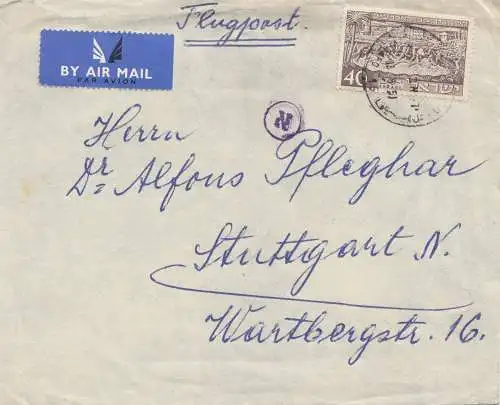 Flugpost.
BY AIR MAIL
PAR AVION
40
ISRAEL
Herrn
Dr Alfons Pfleghar
Stuttgart N.
Wartbergstr. 16.